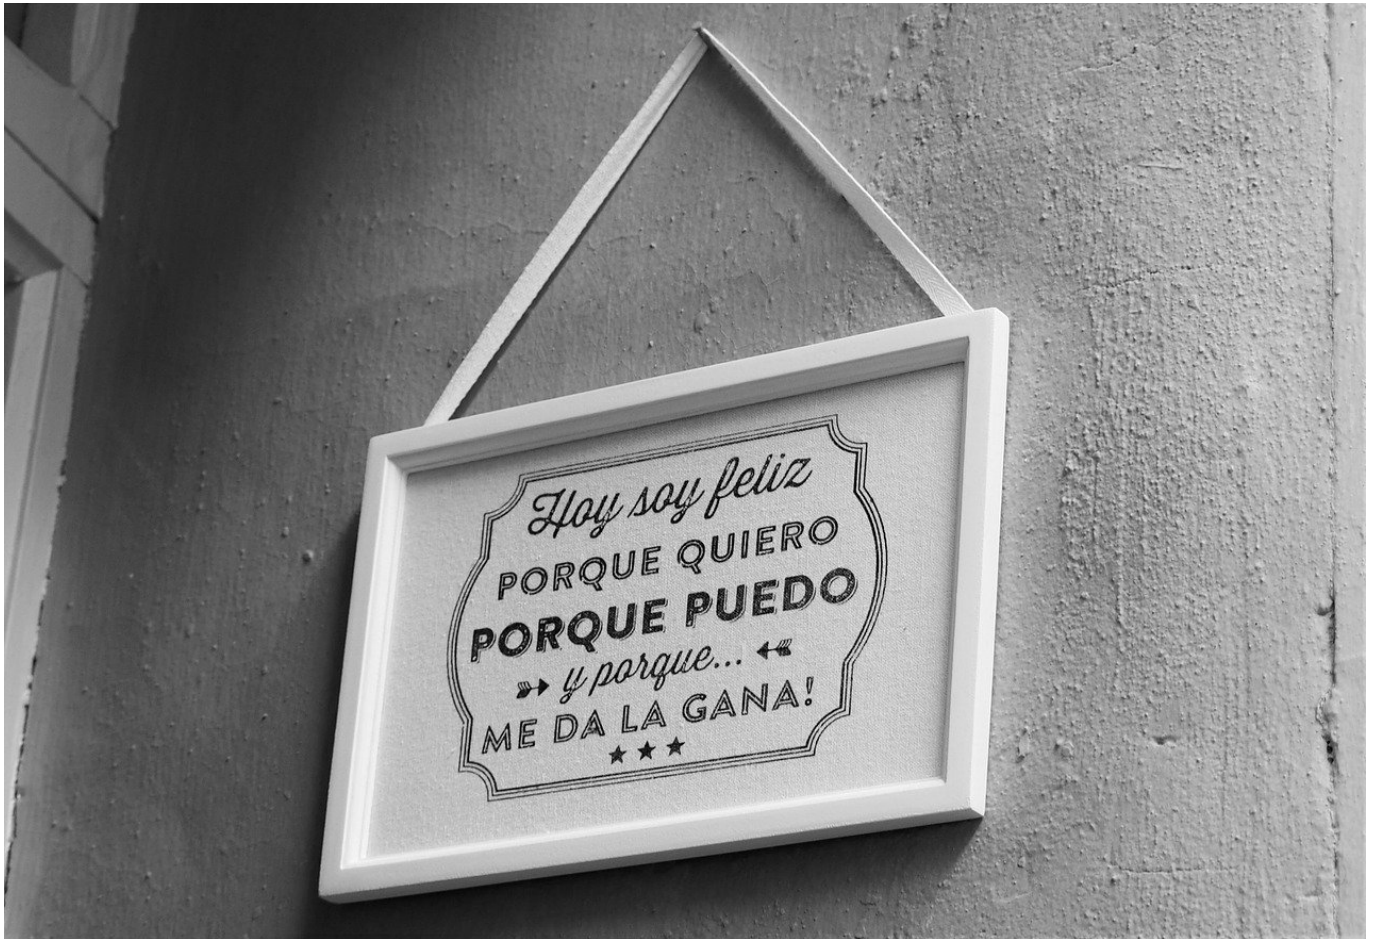 Hoy soy feliz
PORQUE QUIERO
PORQUE PUEDO
y porque...
ME DA LA GANA!